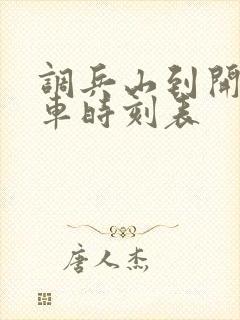 調兵山到開
車時刻表
唐人杰